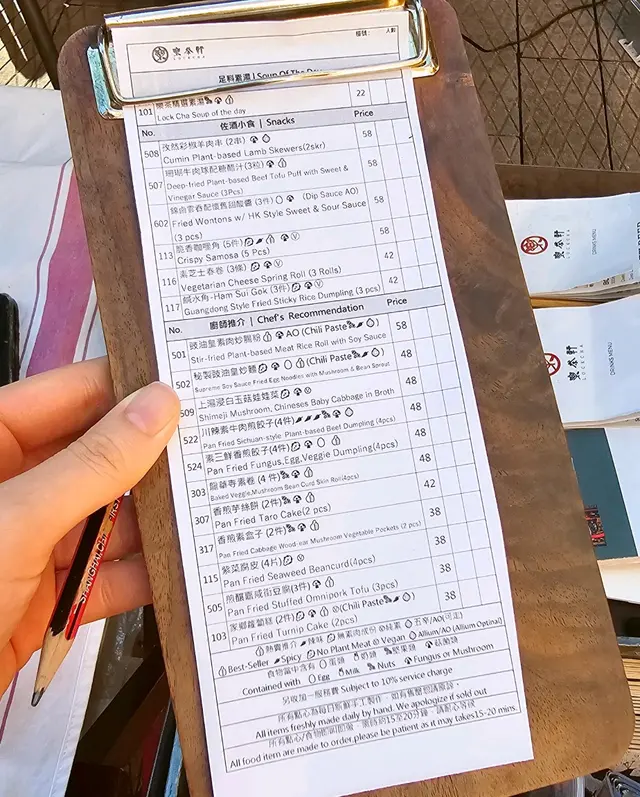 樂茶軒
LOCKCHA
編號: 人數
足料素湯 | Soup Of The Day
101 樂茶精選素湯 22
Lock Cha Soup of the day
No. 佐酒小食 | Snacks Price
508 孜然彩椒羊肉串 (2串) 58
Cumin Plant-based Lamb Skewers(2skr)
507 珊瑚牛肉球配糖醋汁(3粒) 58
Deep-fried Plant-based Beef Tofu Puff with Sweet & Vinegar Sauce (3Pcs)
602 錦鹵雲吞配懷舊甜酸醬 (3件) (Dip Sauce AO) 58
Fried Wontons w/ HK Style Sweet & Sour Sauce
(3 pcs)
113 脆香咖喱角 (5件) 58
Crispy Samosa (5 Pcs)
116 素芝士春卷 (3條) 42
Vegetarian Cheese Spring Roll (3 Rolls)
117 鹹水角-Ham Sui Gok (3件) 42
Guangdong Style Fried Sticky Rice Dumpling (3 pcs)
No. 廚師推介 | Chef's Recommendation Price
501 豉油皇素肉炒腸粉 AO (Chili Paste) 58
Stir-fried Plant-based Meat Rice Roll with Soy Sauce
502 秘製豉油皇炒麵 (Chili Paste) 48
Supreme Soy Sauce Fried Egg Noodles with Mushroom & Bean Sprout
509 上湯浸白玉菇娃娃菜 48
Shimeji Mushroom, Chineses Baby Cabbage in Broth
522 川辣素牛肉煎餃子(4件) 48
Pan Fried Sichuan-style Plant-based Beef Dumpling (4pcs)
524 素三鮮香煎餃子(4件) 48
Pan Fried Fungus,Egg,Veggie Dumpling(4pcs)
303 龍華寺素卷 (4 件) 48
Baked Veggie,Mushroom Bean Curd Skin Roll(4pcs)
307 香煎芋絲餅 (2件) 42
Pan Fried Taro Cake(2 pcs)
317 香煎素盒子 (2件) 38
Pan Fried Cabbage Wood-ear Mushroom Vegetable Pockets (2 pcs)
115 紫菜腐皮 (4片) 38
Pan Fried Seaweed Beancurd(4pcs)
505 煎釀嘉咸街豆腐(3件) 38
Pan Fried Stuffed Omnipork Tofu (3pcs)
103 家鄉蘿蔔糕 (2件) (Chili Paste) 38
Pan Fried Turnip Cake (2pcs)
熱賣推介 辣味 無素肉成份 純素 五辛/AO(可走)
Best-Seller Spicy No Plant Meat Vegan Allium/AO (Allium Optinal)
食物當中含有 蛋類 奶類 堅果類 菇菌類
Contained with Egg Milk Nuts Fungus or Mushroom
另收加一服務費 Subject to 10% service charge
所有點心為每日新鮮手工製作，如有售罄懇請原諒。
All items freshly made daily by hand. We apologize if sold out
All food item are made to order,please be patient as it may takes15-20 mins.
樂茶軒
LOCKCHA
DRINKS MENU
樂茶軒
LOCKCHA
DRINKS MENU